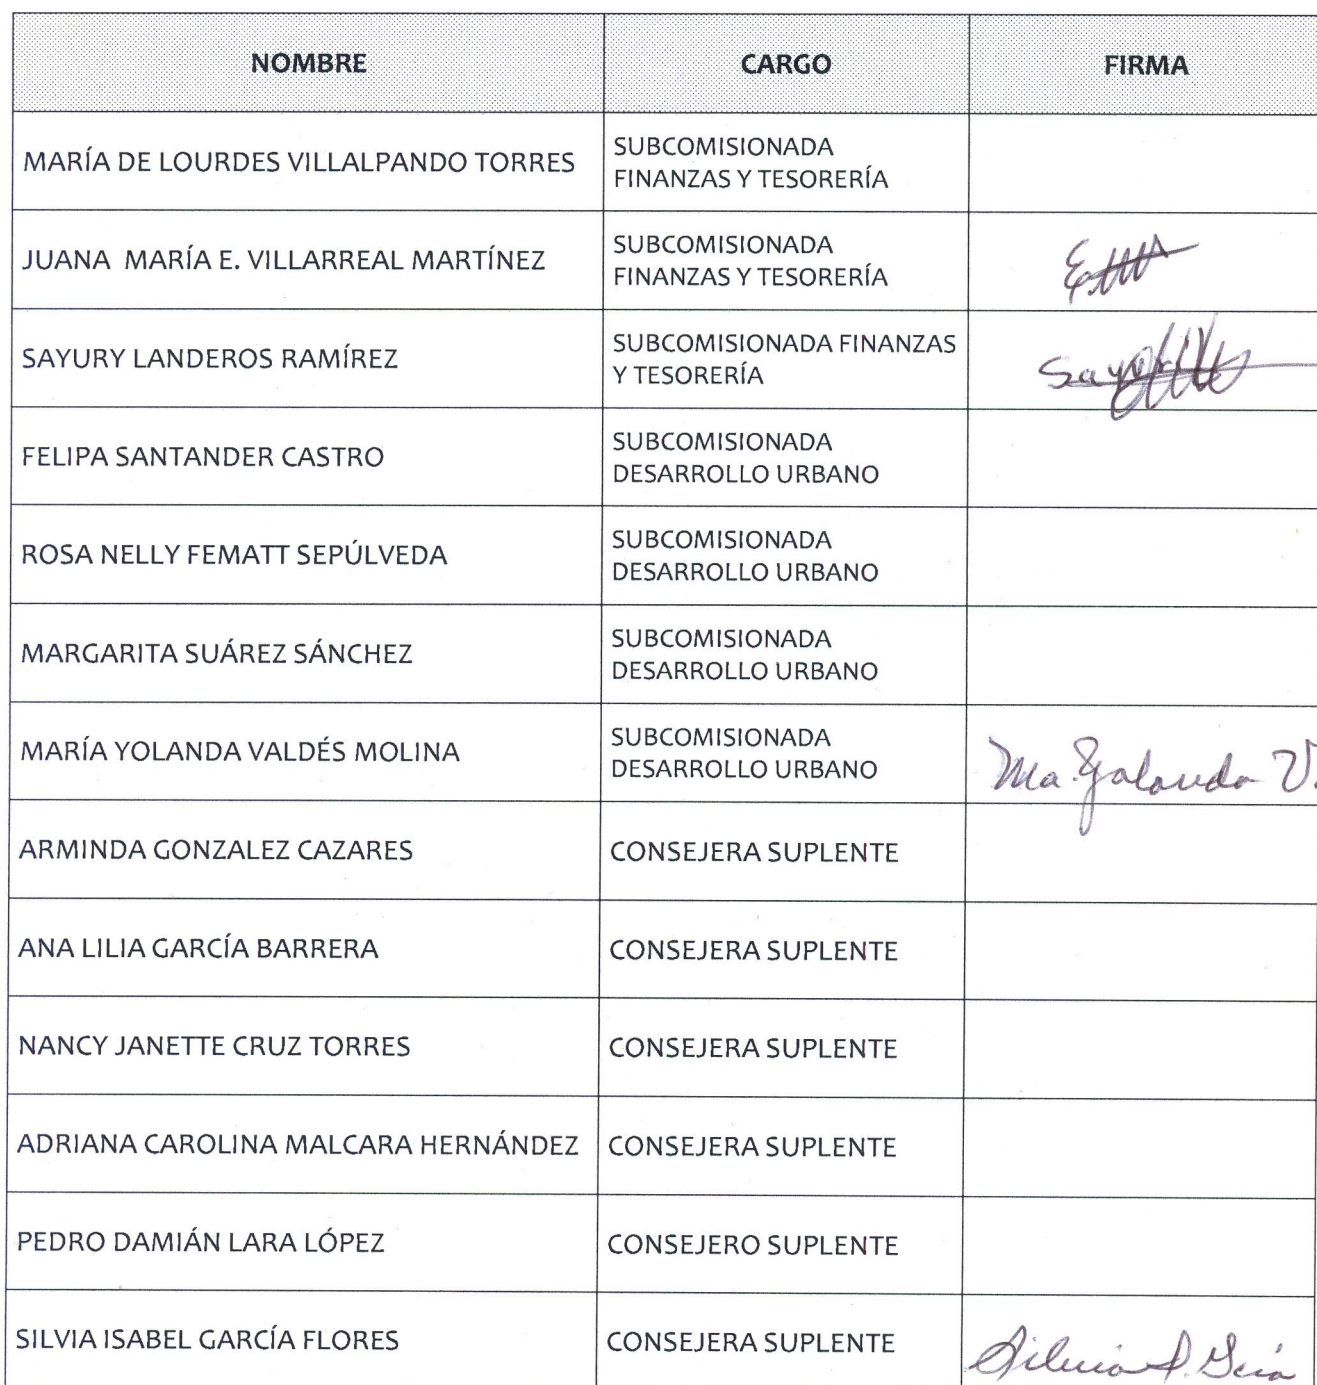 NOMBRE CARGO FIRMA
MARÍA DE LOURDES VILLALPANDO TORRES
SUBCOMISIONADA
FINANZAS Y TESORERÍA
JUANA MARÍA E. VILLARREAL MARTÍNEZ
SUBCOMISIONADA
FINANZAS Y TESORERÍA
SAYURY LANDEROS RAMÍREZ
SUBCOMISIONADA FINANZAS
Y TESORERÍA
FELIPA SANTANDER CASTRO
SUBCOMISIONADA
DESARROLLO URBANO
ROSA NELLY FEMATT SEPÚLVEDA
SUBCOMISIONADA
DESARROLLO URBANO
MARGARITA SUÁREZ SÁNCHEZ
SUBCOMISIONADA
DESARROLLO URBANO
MARÍA YOLANDA VALDÉS MOLINA
SUBCOMISIONADA
DESARROLLO URBANO
Ma. Yolanda V.
ARMINDA GONZALEZ CAZARES CONSEJERA SUPLENTE
ANA LILIA GARCÍA BARRERA CONSEJERA SUPLENTE
NANCY JANETTE CRUZ TORRES CONSEJERA SUPLENTE
ADRIANA CAROLINA MALCARA HERNÁNDEZ CONSEJERA SUPLENTE
PEDRO DAMIÁN LARA LÓPEZ CONSEJERO SUPLENTE
SILVIA ISABEL GARCÍA FLORES CONSEJERA SUPLENTE Silvia I. Gcía